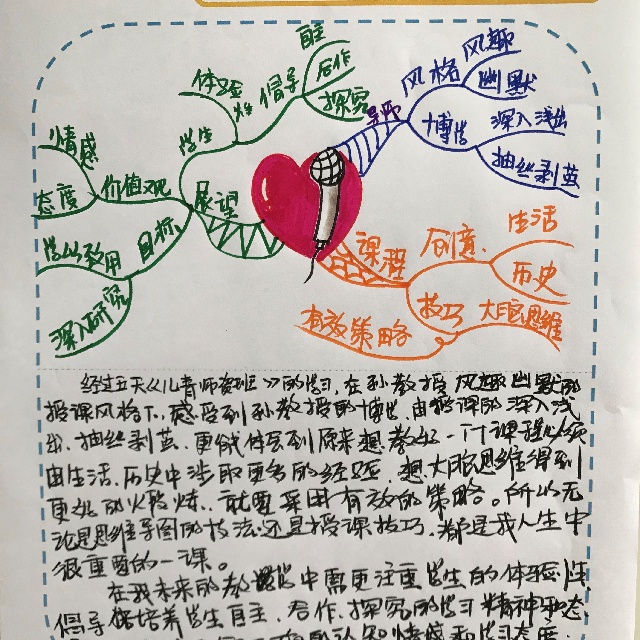 自主
合作
探究
倡导
体验
性
学生
展望
目标
价值观
情感
态度
学以致用
深入研究
导师
风格
风趣
幽默
博学
深入浅出
抽丝剥茧
课程
创意
生活
历史
技巧
大胆思维
有效策略
经过五天《儿童师资班》的学习,在孙教授风趣幽默的
授课风格下,感受到孙教授的博学,由授课的深入浅
出,抽丝剥茧,更能体会到原来想教好一门课程必须
由生活、历史中涉取更多的经验,想大胆思维得到
更生动火锻炼,就要采用有效的策略。所以无
论是思维导图的技法还是授课技巧,都是我人生中
很重要的一课。
在我未来的教学中需更注重学生的体验性,
倡导 培养学生自主、合作、探究的学习精神
情感和学习态度